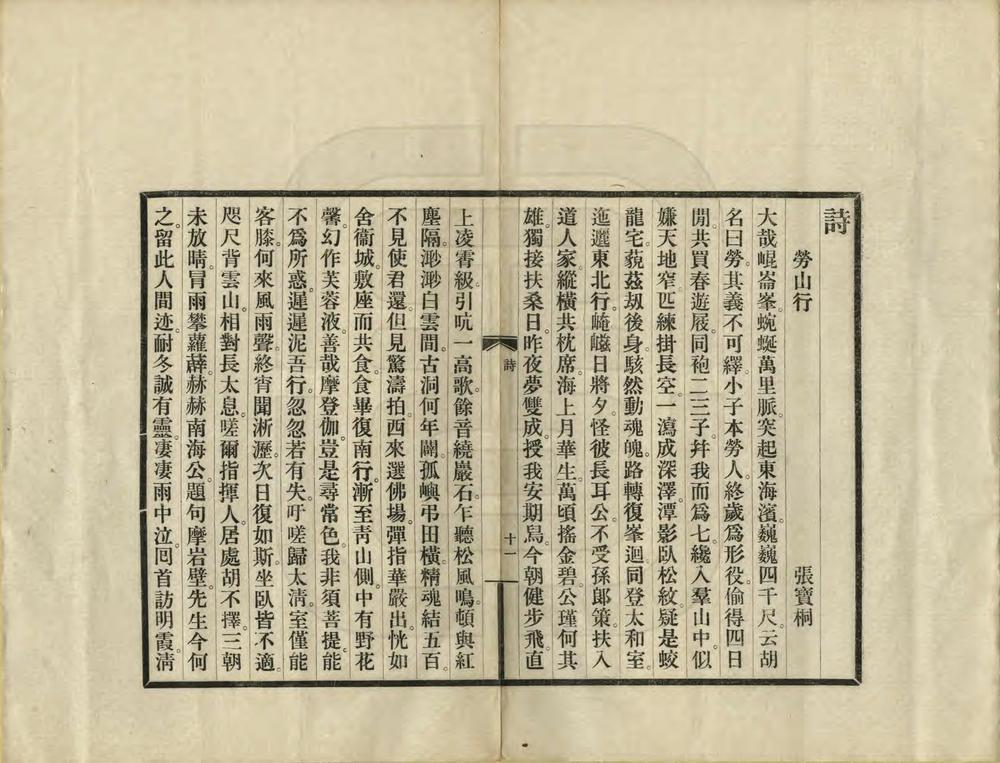 詩
勞山行　張寶桐
大哉崐崙峯。蜿蜒萬里脈。突起東海濱。巍巍四千尺。云胡
名曰勞。其義不可繹。小子本勞人。終歲爲形役。偷得四日
閒。共買春遊屐。同袍二三子。幷我而爲七。纔入羣山中。似
嫌天地窄。匹練掛長空。一瀉成深澤。潭影臥松紋。疑是蛟
龍宅。藐茲刼後身。駭然動魂魄。路轉復峯迴。同登太和室。
迤邐東北行。崦嵫日將夕。怪彼長耳公。不受孫郎策。扶入
道人家。縱橫共枕席。海上月華生。萬頃搖金碧。公瑾何其
雄。獨接扶桑日。昨夜夢雙成。授我安期舄。今朝健步飛。直
詩
十一
上凌霄級。引吭一高歌。餘音繞巖石。乍聽松風鳴。頓與紅
塵隔。渺渺白雲間。古洞何年闢。孤嶼弔田橫。精魂結五百。
不見使君還。但見驚濤拍。西來選佛場。彈指華嚴出。恍如
舍衞城。敷座而共食。食畢復南行。漸至靑山側。中有野花
馨。幻作芙蓉液。善哉摩登伽。豈是尋常色。我非須菩提。能
不爲所惑。遲遲泥吾行。忽忽若有失。吁嗟歸太淸。室僅能
客膝。何來風雨聲。終宵聞淅瀝。次日復如斯。坐臥皆不適。
咫尺背雲山。相對長太息。嗟爾指揮人。居處胡不擇。三朝
未放晴。冒雨攀蘿薜。赫赫南海公。題句摩岩壁。先生今何
之。留此人間迹。耐冬誠有靈。凄凄雨中泣。囘首訪明霞。淸